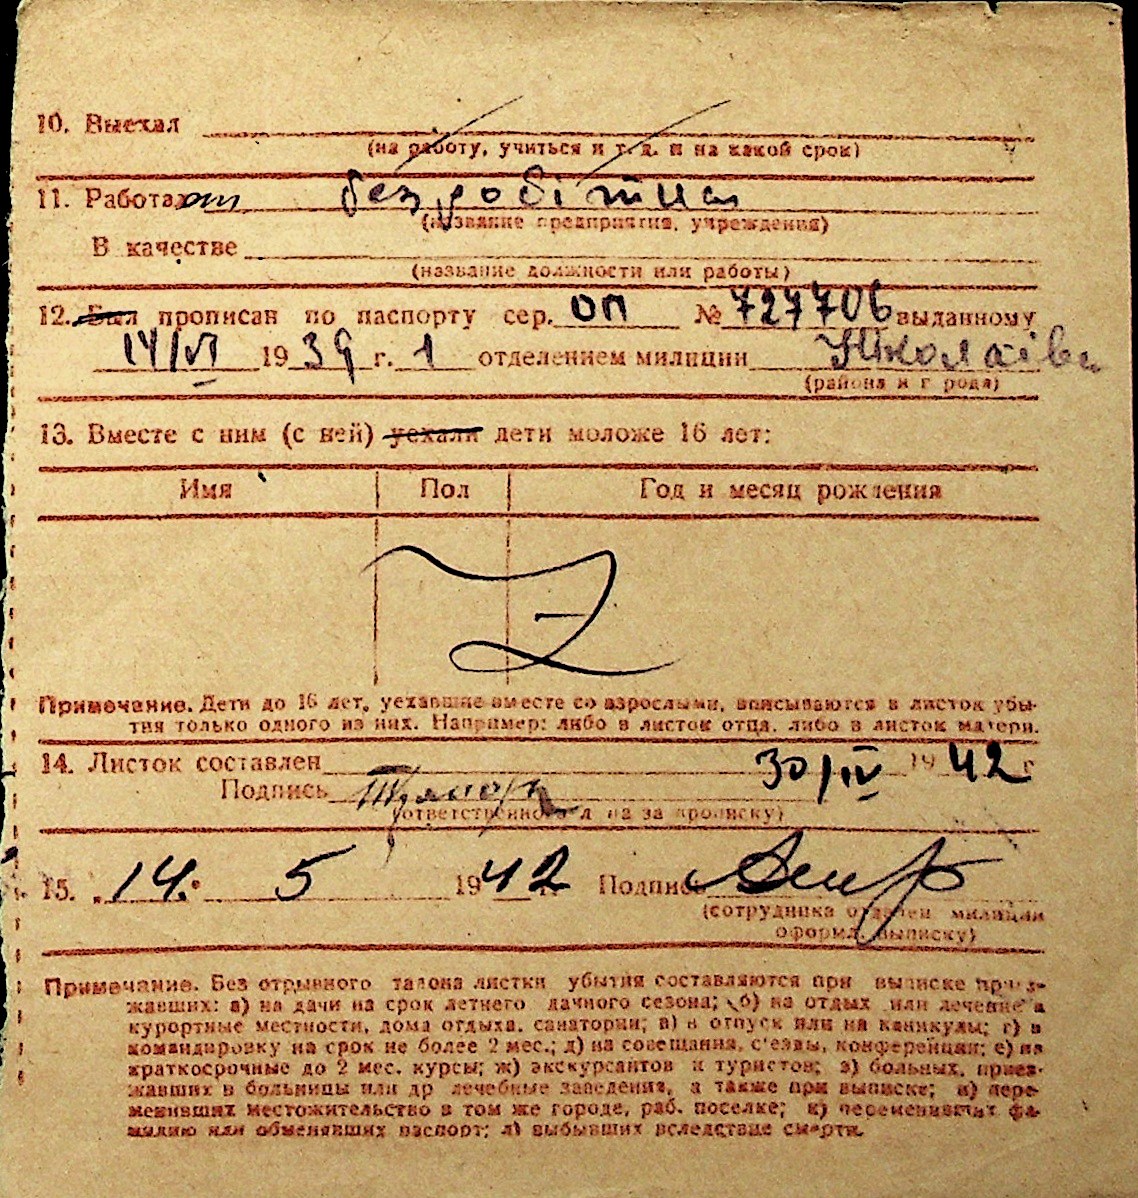 10. Выехал
(на работу, учиться и т. д. и на какой срок)
11. Работа безробітна
(название предприятия, учреждения)
В качестве
(название должности или работы)
12. Был прописан по паспорту сер. ОП № 727706 выданному
14/VI 1939 г. 1 отделением милиции Миколаїв
(района и города)
13. Вместе с ним (с ней) уехали дети моложе 16 лет:
Имя Пол Год и месяц рождения
Примечание. Дети до 16 лет, уехавшие вместе со взрослыми, вписываются в листок убы-
тия только одного из них. Например: либо в листок отца, либо в листок матери.
14. Листок составлен 30/IV 1942 г
Подпись
(ответственного л на за прописку)
15. 14. 5 1942 г. Подпись
(сотрудника отделен милиции
оформ. выписку)
Примечание. Без отрывного талона листки убытия составляются при выписке приез-
жавших: а) на дачи на срок летнего дачного сезона; б) на отдых или лечение в
курортные местности, дома отдыха, санатории; в) в отпуск или на каникулы; г) в
командировку на срок не более 2 мес.; д) на совещания, с'езды, конференции; е) на
краткосрочные до 2 мес. курсы; ж) экскурсантов и туристов; з) больных, приез-
жавших в больницы или др лечебные заведения, а также при выписке; и) пере-
менивших местожительство в том же городе, раб. поселке; к) переменивших фа-
милию или обменявших паспорт; л) выбывших вследствие смерти.